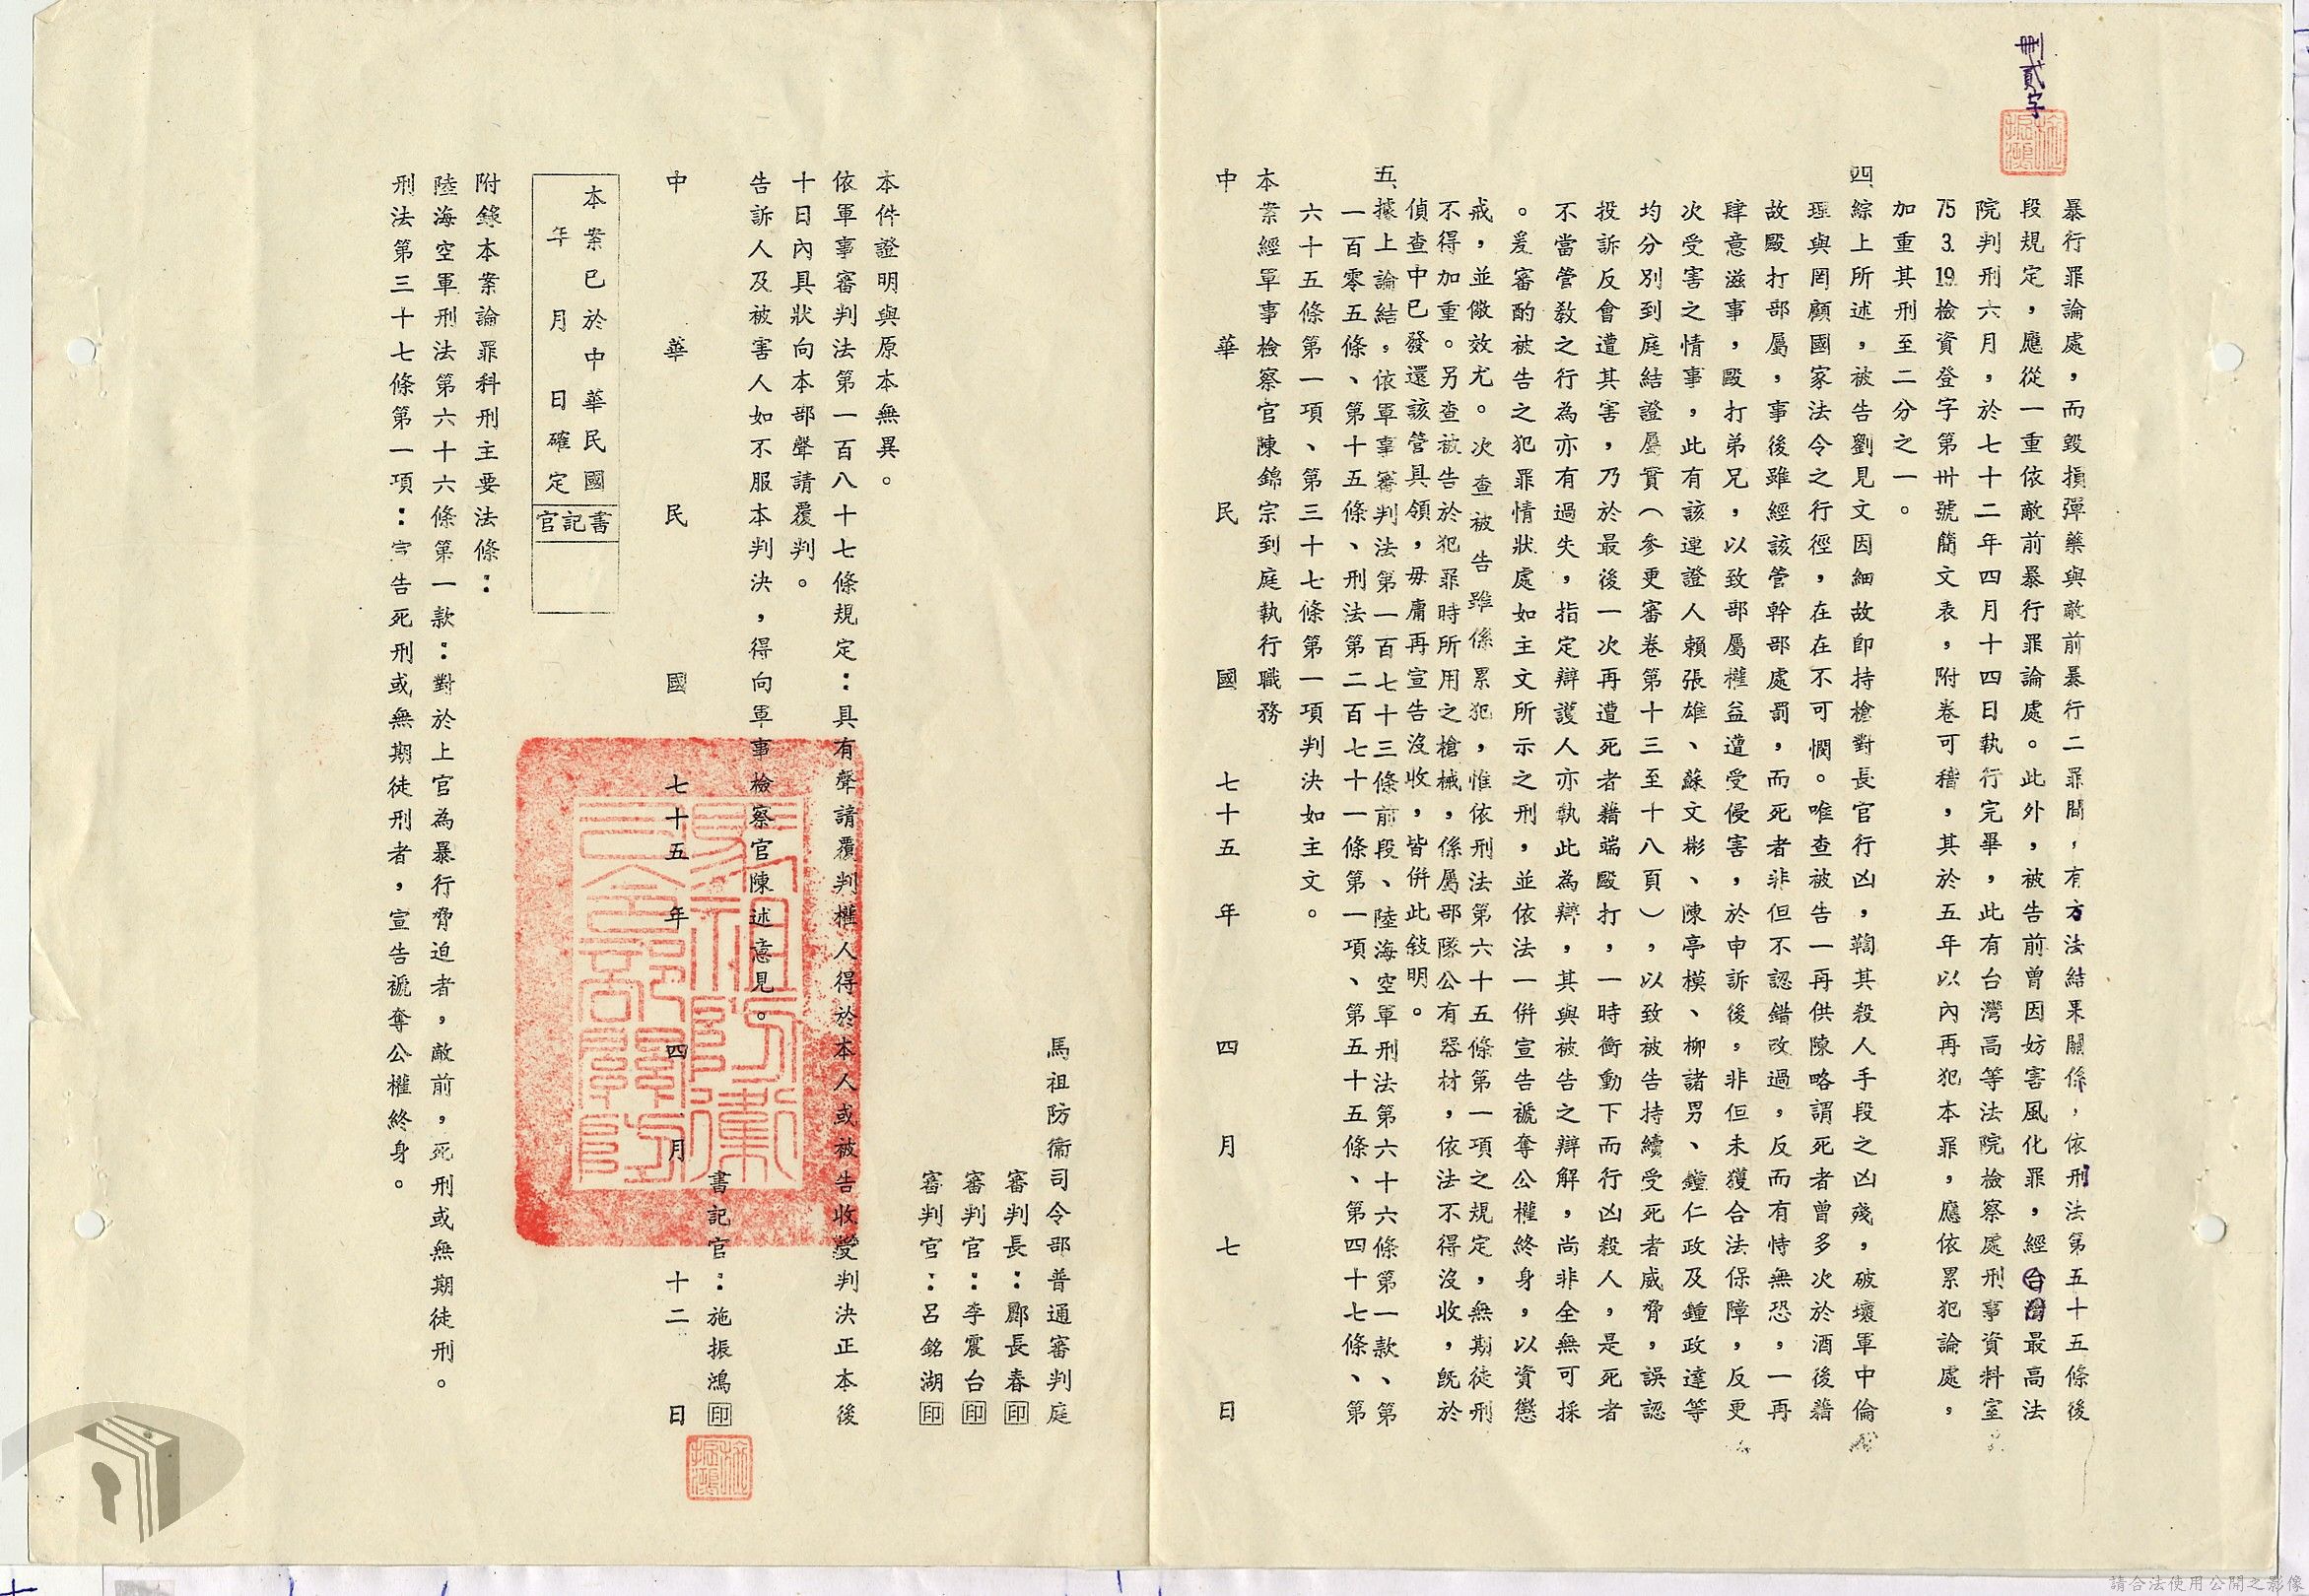 刪貳字
暴行罪論處，而毀損彈藥與敵前暴行二罪間，有方法結果關係，依刑法第五十五條後
段規定，應從一重依敵前暴行罪論處。此外，被告前曾因妨害風化罪，經台灣最高法
院判刑六月，於七十二年四月十四日執行完畢，此有台灣高等法院檢察處刑事資料室
75 3. 19.檢資登字第卅號簡文表，附卷可稽，其於五年以內再犯本罪，應依累犯論處，
加重其刑至二分之一。
四、綜上所述，被告劉見文因細故即持槍對長官行凶，鞫其殺人手段之凶殘，破壞軍中倫
理與罔顧國家法令之行徑，在在不可憫。唯查被告一再供陳略謂死者曾多次於酒後藉
故毆打部屬，事後雖經該管幹部處罰，而死者非但不認錯改過，反而有恃無恐，一再
肆意滋事，毆打弟兄，以致部屬權益遭受侵害，於申訴後，非但未獲合法保障，反更
次受害之情事，此有該連證人賴張雄、蘇文彬、陳亭模、柳諸男、鐘仁政及鍾政達等
均分別到庭結證屬實（參更審卷第十三至十八頁），以致被告持續受死者威脅，誤認
投訴反會遭其害，乃於最後一次再遭死者藉端毆打，一時衝動下而行凶殺人，是死者
不當管教之行為亦有過失，指定辯護人亦執此為辯，其與被告之辯解，尚非全無可採
。爰審酌被告之犯罪情狀處如主文所示之刑，並依法一併宣告褫奪公權終身，以資懲
戒，並儆效尤。次查被告雖係累犯，惟依刑法第六十五條第一項之規定，無期徒刑
不得加重。另查被告於犯罪時所用之槍械，係屬部隊公有器材，依法不得沒收，既於
偵查中已發還該管具領，毋庸再宣告沒收，皆併此敍明。
五、據上論結，依軍事審判法第一百七十三條前段、陸海空軍刑法第六十六條第一款、第
一百零五條、第十五條、刑法第二百七十一條第一項、第五十五條、第四十七條、第
六十五條第一項、第三十七條第一項判決如主文。
本案經軍事檢察官陳錦宗到庭執行職務
中華民國七十五年四月七日
馬祖防衞司令部普通審判庭
審判長：鄭長春印
審判官：李震台印
審判官：呂銘湖印
本件證明與原本無異。
依軍事審判法第一百八十七條規定：具有聲請覆判權人得於本人或被告收受判決正本後
十日內具狀向本部聲請覆判。
告訴人及被害人如不服本判決，得向軍事檢察官陳述意見。
書記官：施振鴻印
中華民國七十五年四月十二日
本案已於中華民國
年月日確定
書記官
附錄本案論罪科刑主要法條：
陸海空軍刑法第六十六條第一款：對於上官為暴行脅迫者，敵前，死刑或無期徒刑。
刑法第三十七條第一項：宣告死刑或無期徒刑者，宣告褫奪公權終身。
請合法使用公開之影像